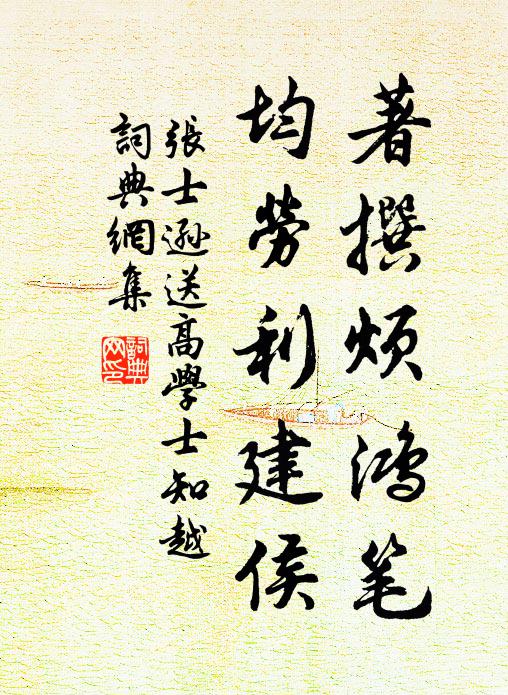 著撰烦鸿笔
均劳利建侯
張士遜送高學士知越
詞典網集
詞典网印